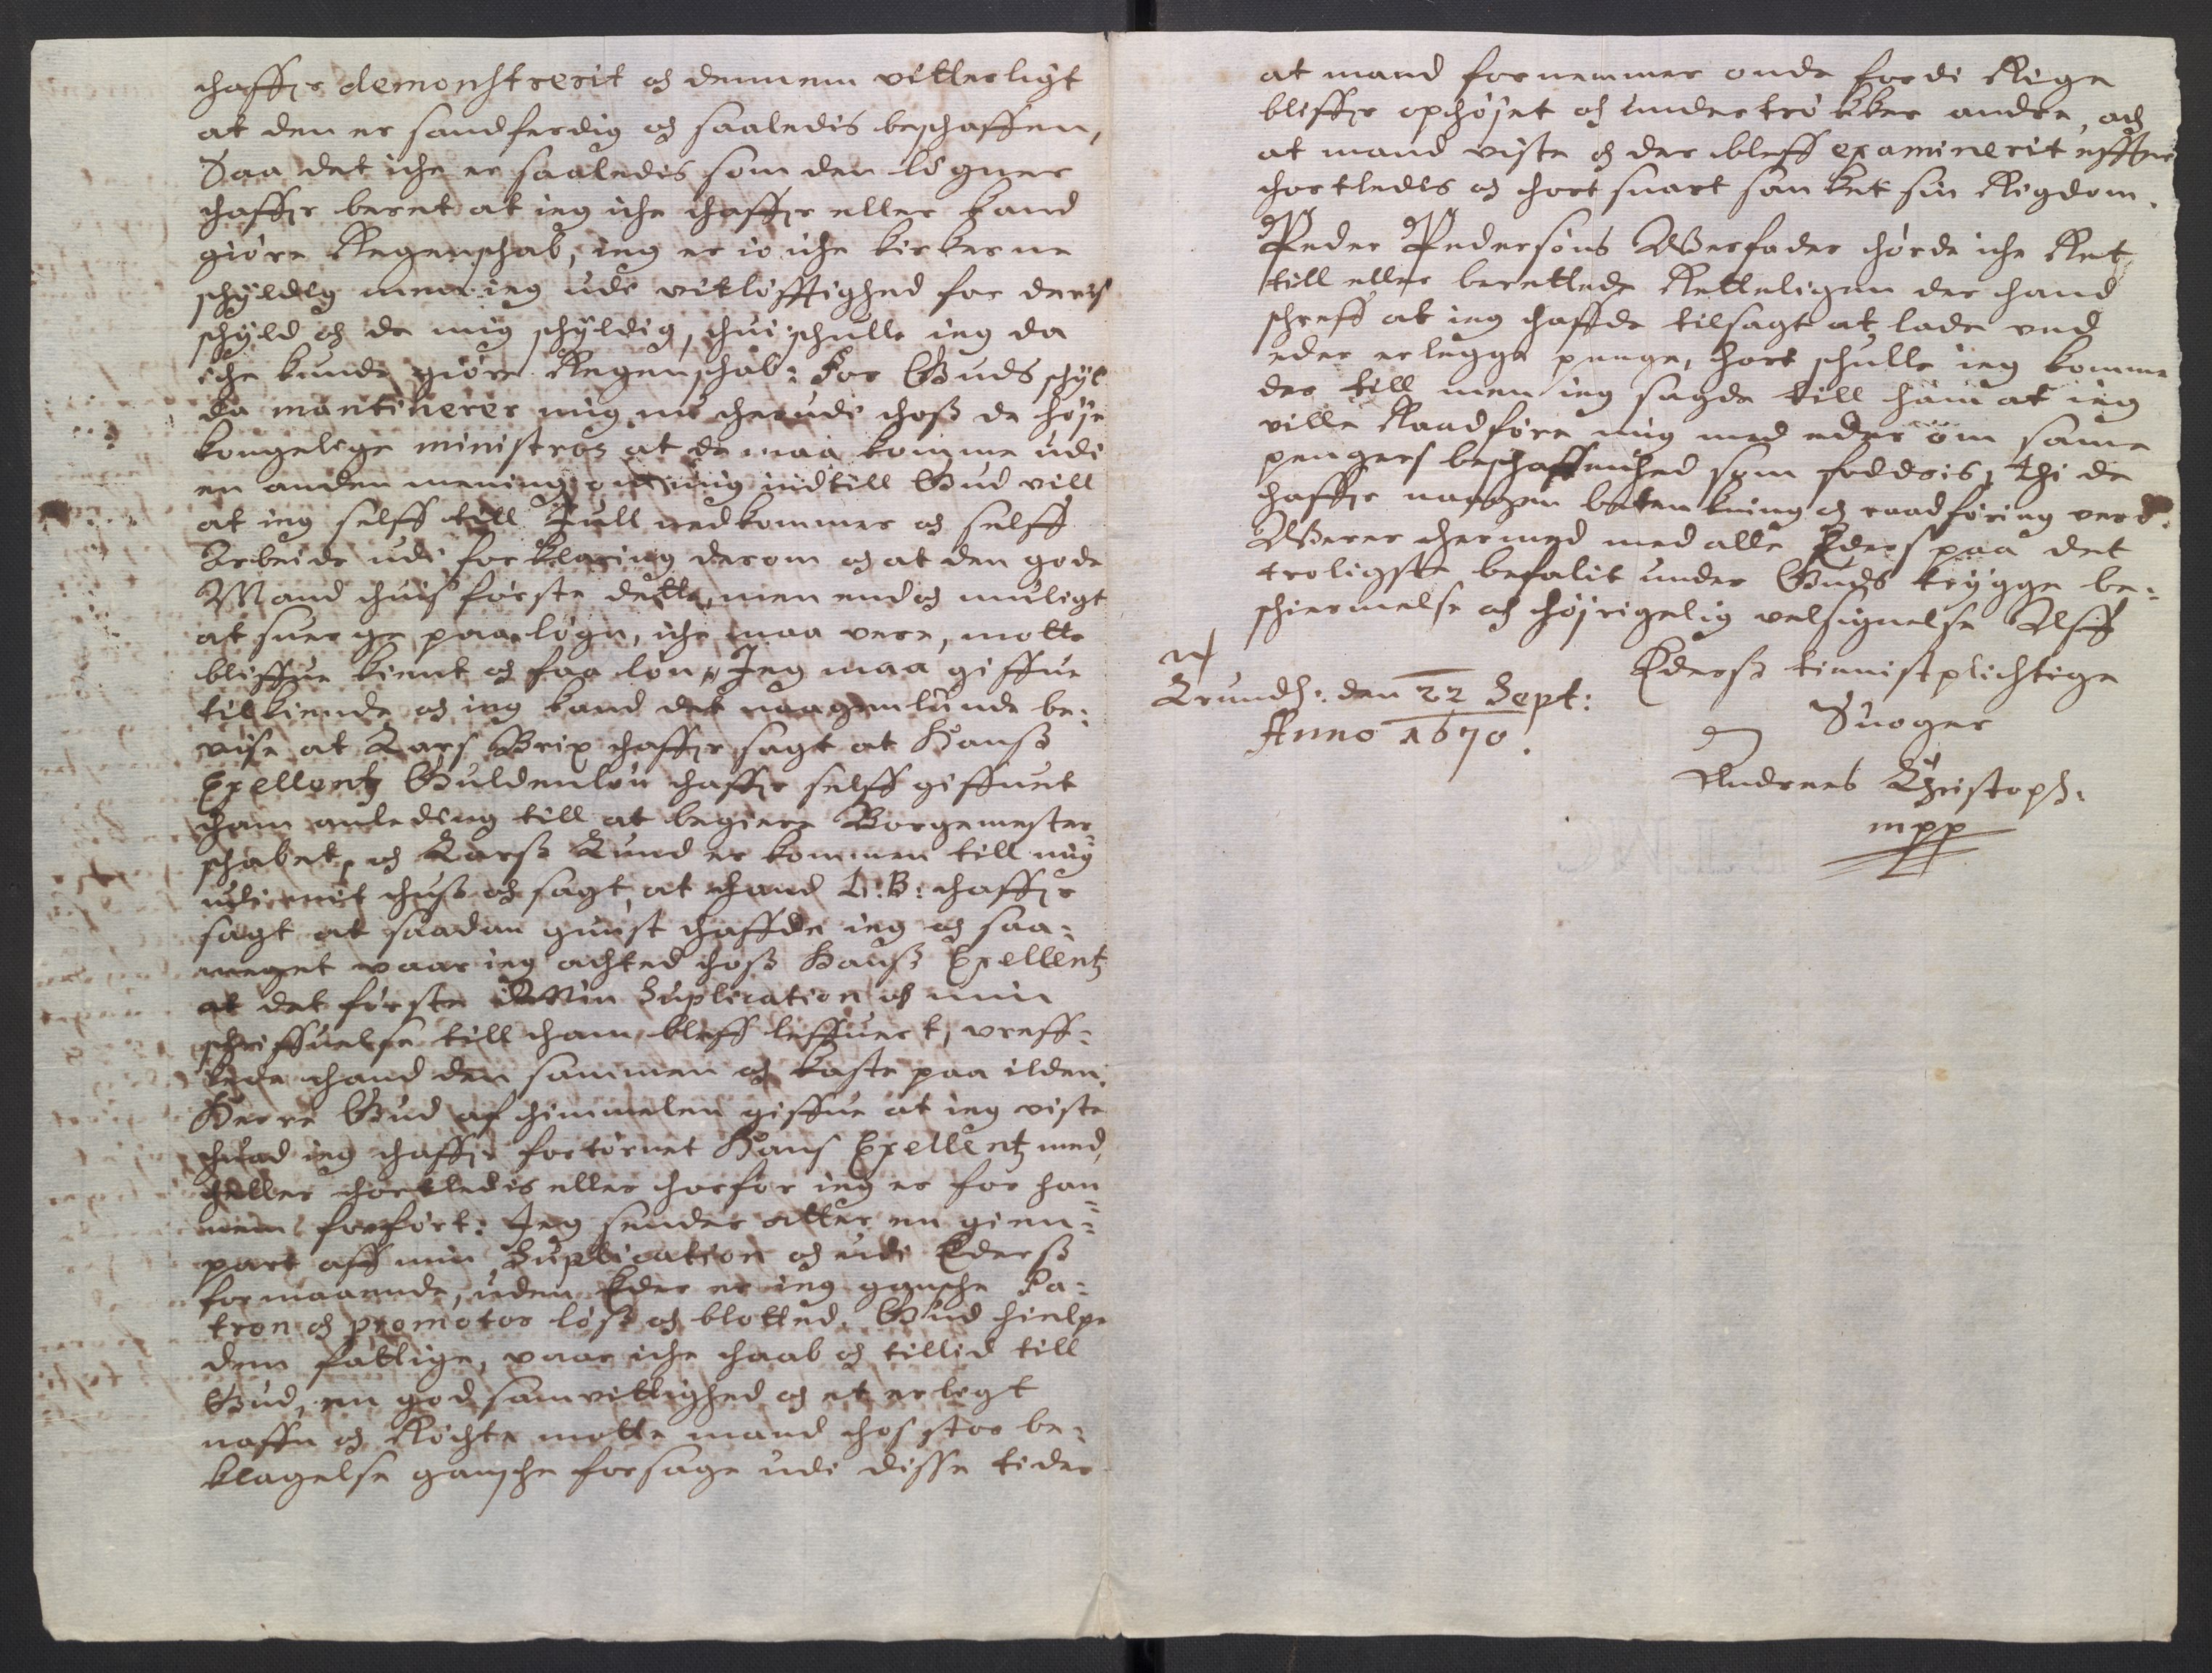 haffr demonstrerit og dennem vitterligt
at den er sandferdig og saaledis beschaffen,
Saa det iche er saaledis som den løgner
haffr beret at ieg iche haffr eller kand
giøre Regenschab, ieg er io iche kirkerne
schyldig men ieg udi vitløfftighed for deris
schyld og de mig schyldig, hui schulle ieg da
iche kunde giøre Regenschab: For Guds schyl
da mantinerer mig nu herudi hoß de høje
kongelige ministros at de maa komme udi
en anden mening om mig indtill Gud vill
at ieg selff till Jull nedkommer og selff
Arbeide udi forklaring derom og at den gode
Mand huis første dette, men end og muligt
at suerge paa løgn, iche maa vere, motte
bliffue kient og faa løn, Jeg maa giffue
tilkiende og ieg kand det naagenlunde be:
vise at Lars Brix haffr sagt at Hanß
Exellentz Guldenløu haffr selff giffuet
ham anleding till at begiere Borgemester
schabet, og Larß Lund er kommen till mig
udi mit huß og sagt, at hand L: B: haffr
sagt at saadan gunst haffde ieg og saa:
meget vaar ieg achted hoß Hanß Exellentz
at det første Min Suplication og min
schriffuelse till ham bleff leffuert, vreff:
lede hand den sammen og kaste paa ilden.
Herre Gud af himmelen giffue at ieg viste
huad ieg haffr fortørnet Hans Exellentz med,
heller hortledis eller horfor ieg er for han
nem forført: Jeg sender atter en gien:
part aff min Suplication og udi Ederß
formaaende, uden Eder er ieg gansche Pa:
tron og promotor løß og blotted. Gud hielpe
den fattige, vaar iche haab og tillid till
Gud, en god samvittighed og et erligt
naffn og Røchte motte mand hos stor be:
klagelse gansche forsage udi disse tider
at mand fornemmer onde fordi Rige
bliffr ophøjet og undertrøkker andre, og
at mand viste og der bleff examinerit effter
hortledis og hort snart sanket sin Rigdom.
Peder Pedersøns Verfader hørde iche Ret
till eller berettede Retteligen der hand
schreff at ieg haffde tilsagt at lade ved
eder erlegge penge, hort schulle ieg komme
der till men ieg sagde till ham at ieg
ville Raadføre mig med eder om same
pengers beschaffenhed som foddris, thi de
haffr naagen betenkning og raadføring verd.
Verer hermed med alle Eders paa det
troligste befalit under Guds trygge be:
schiermelse og højrigelig velsignelse Aff
Ederß tienistplichtige
Trundh: den 22 Sept:
Suoger
Anno 1670.
Andreas Christoph:
mpp